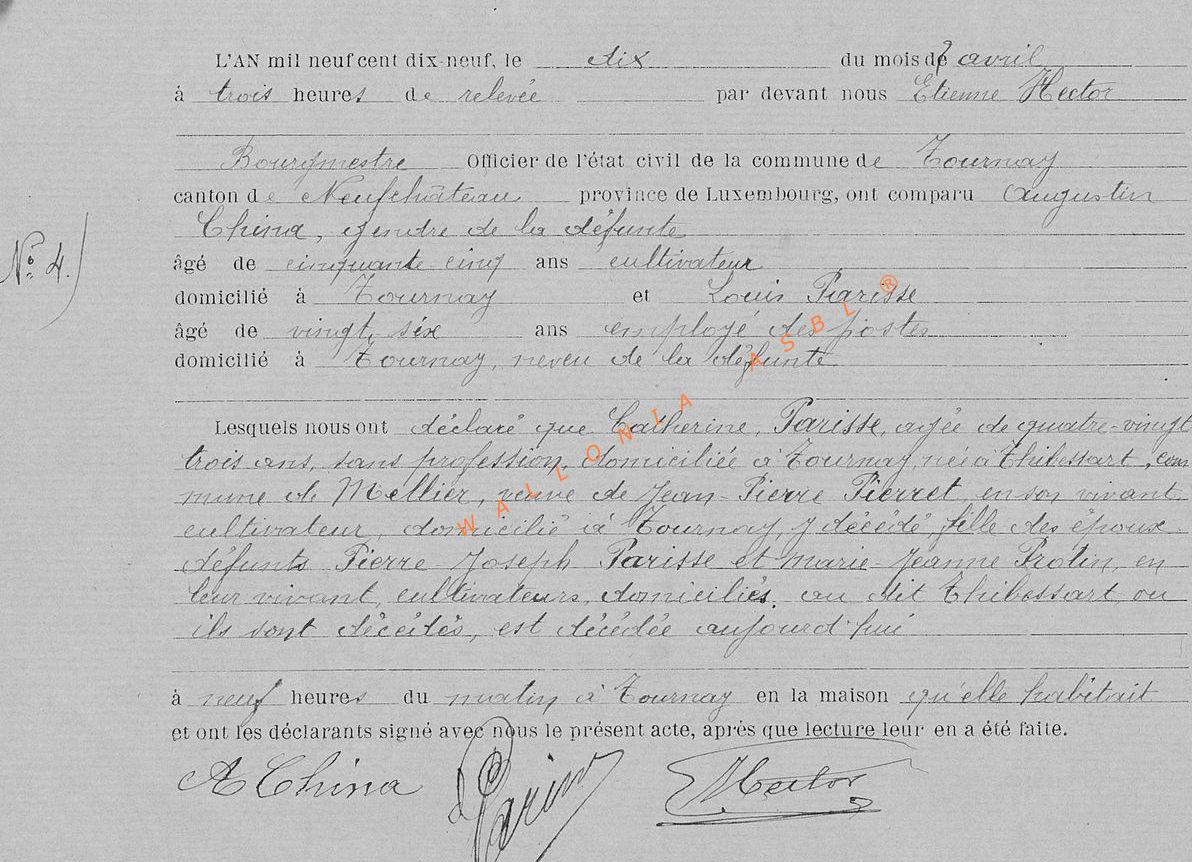 L'AN mil neuf cent dix-neuf, le dix du mois de avril
à trois heures de relevée par devant nous Etienne Hector
Bourgmestre Officier de l'état civil de la commune de Tournay
canton de Neufchâteau province de Luxembourg, ont comparu Augustin
China, gendre de la défunte
No 4.
âgé de cinquante cinq ans cultivateur
domicilié à Tournay et Louis Parisse
âgé de vingt six ans employé des postes
domicilié à Tournay, neveu de la défunte
Lesquels nous ont déclaré que Catherine, Parisse, agée de quatre-vingt
trois ans, sans profession, domiciliée à Tournay, née à Thibessart, com
mune de Mellier, veuve de Jean-Pierre Pierret, en son vivant
cultivateur, domicilié à Tournay, y décédé, fille des époux
défunts Pierre Joseph Parisse et marie-Jeanne Protin, en
leur vivant, cultivateurs, domiciliés, au dit Thibessart, ou
ils sont décédés, est décédée aujourd'hui
à neuf heures du matin à Tournay en la maison qu'elle habitait
et ont les déclarants signé avec nous le présent acte, après que lecture leur en a été faite.
A China Hector
WALLONIA ASBL ®